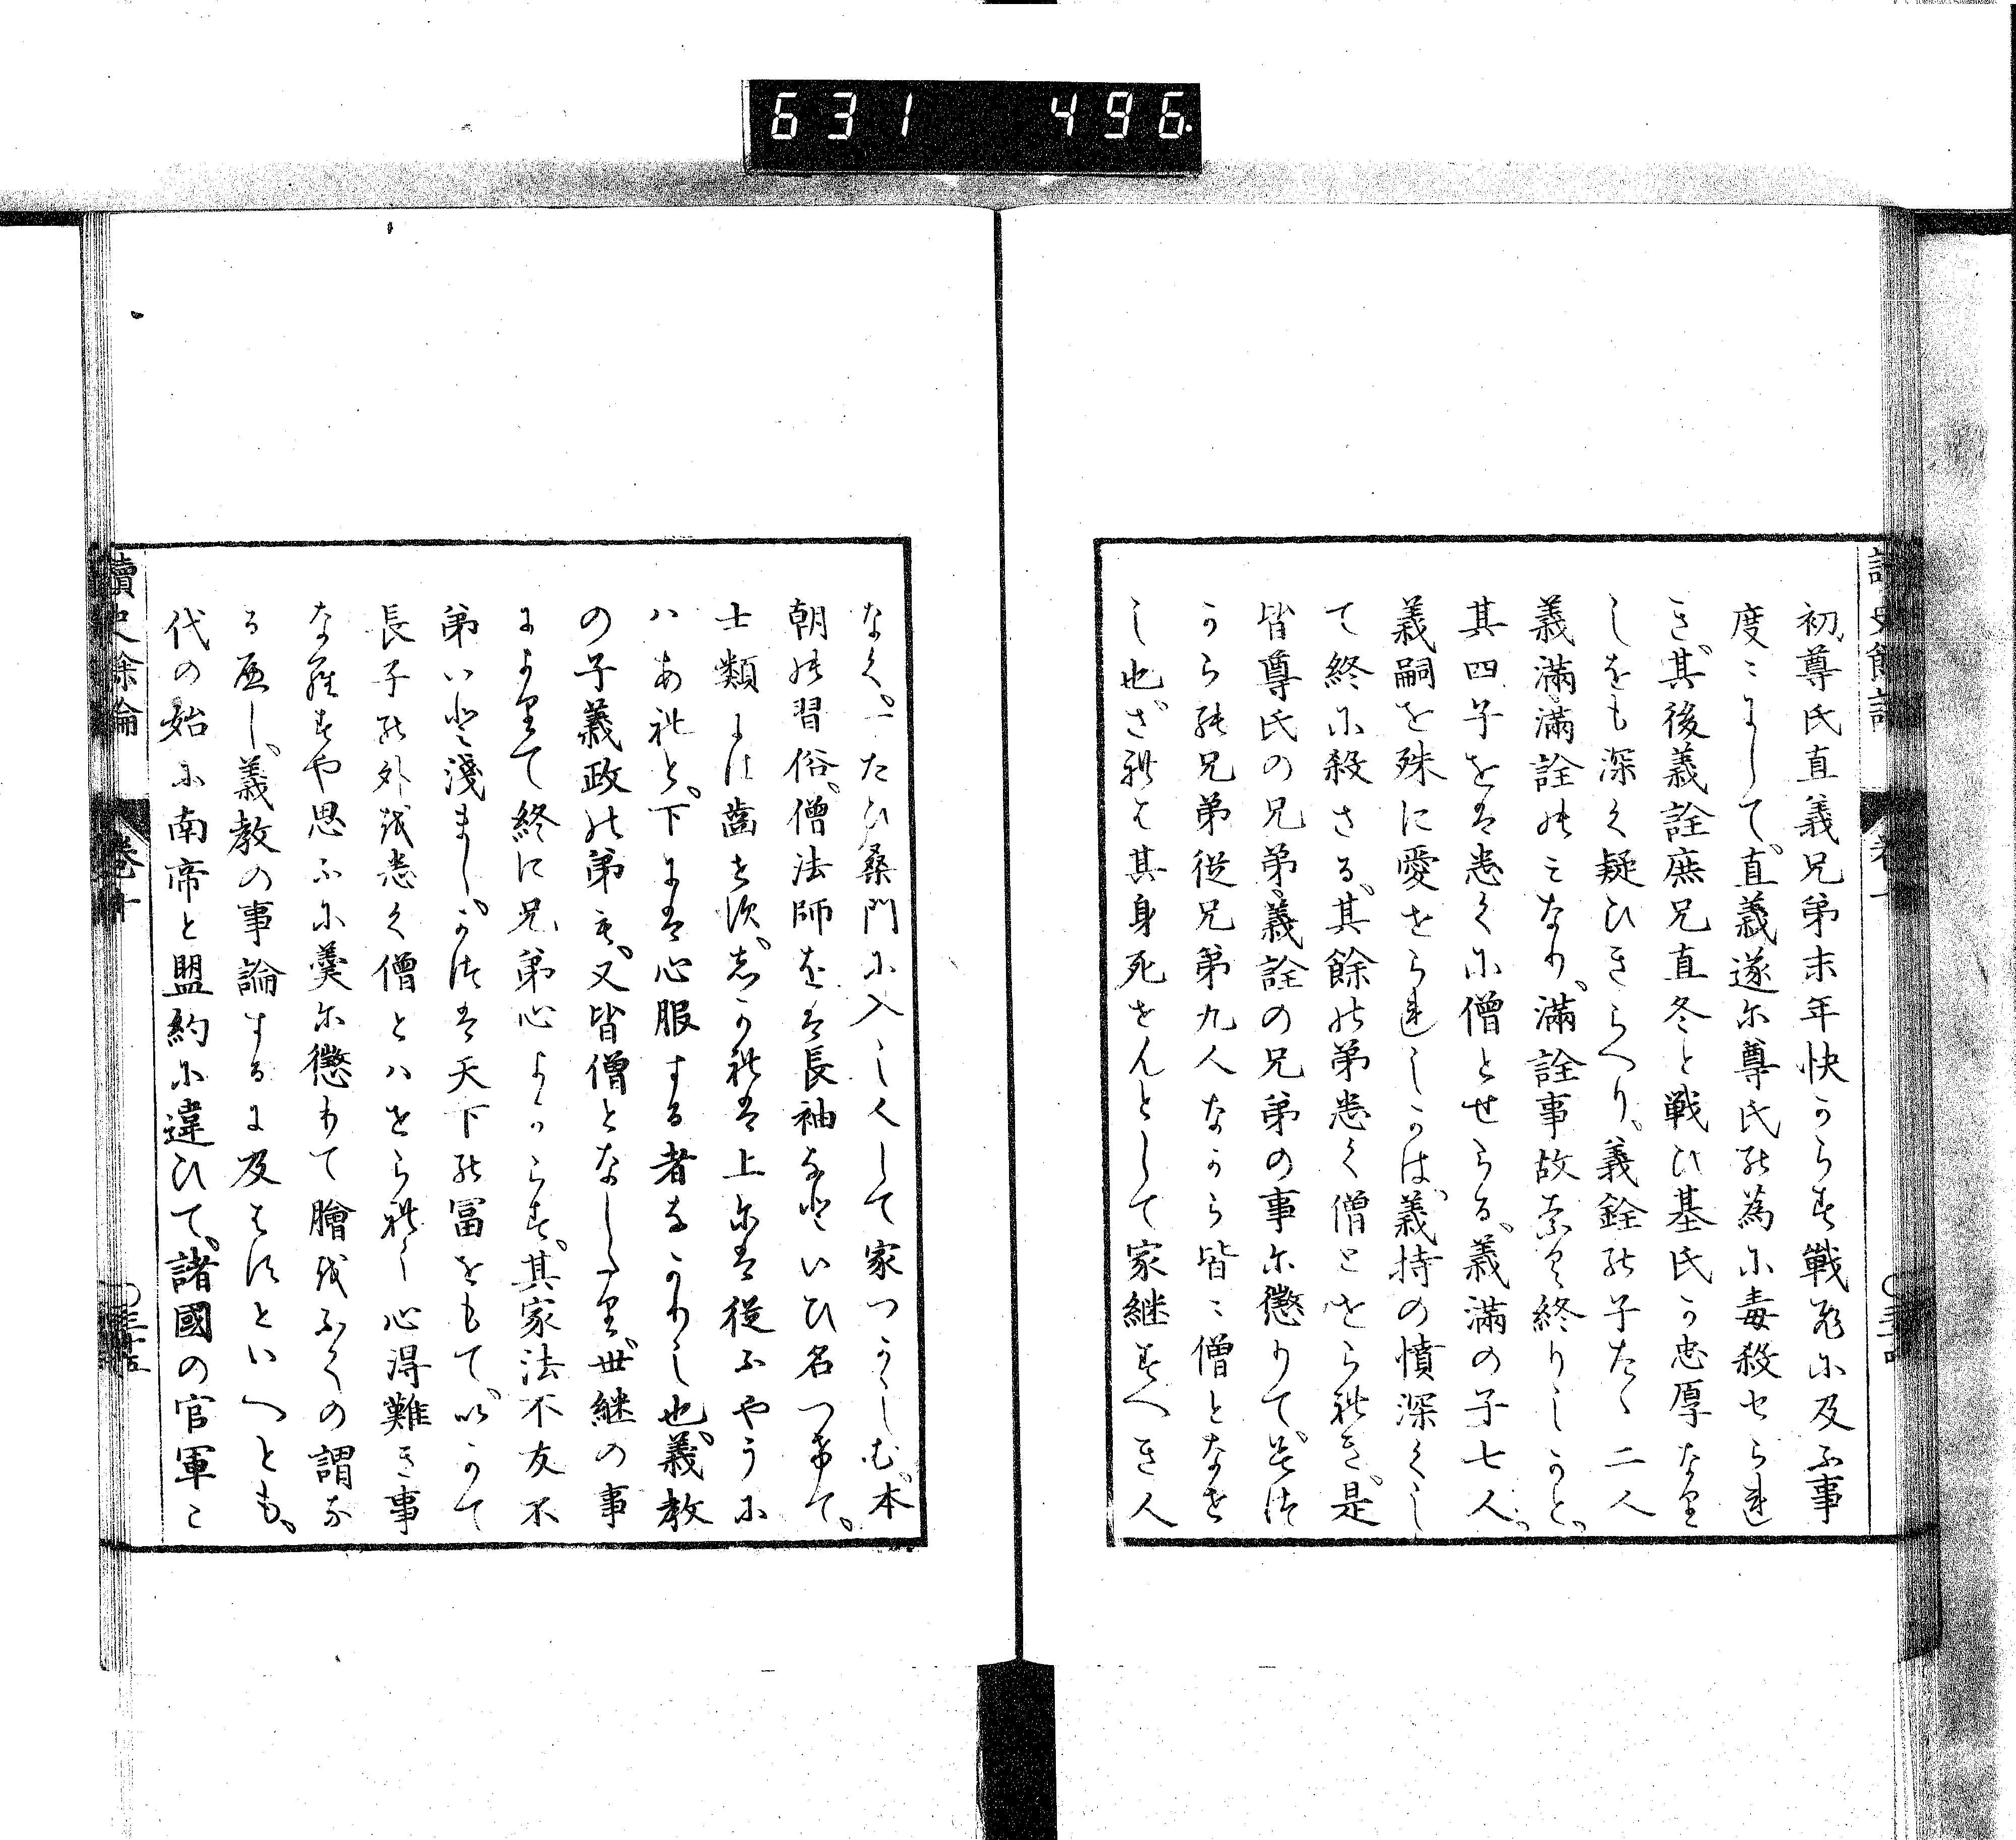 631 496
初、尊氏直義兄弟末年快からす戦爭に及ふ事
度々にして、直義遂に尊氏の為に毒殺せられ
き、其後義詮庶兄直冬と戦ひ基氏か忠厚なり
しをも深く疑ひきらへり、義銓の子たゝ二人
義滿、滿詮のミなり、滿詮事故なく終りしかと、
其四子をは悉くに僧とせらる、義滿の子七人、
義嗣を殊に愛せられしかは、義持の憤深くし
て終に殺さる、其餘の弟悉く僧とせられき、是
皆尊氏の兄弟、義詮の兄弟の事に懲りて、其
から兄弟従兄弟九人なから皆々僧となせ
し也、されと其身死せんとして家継すへき人
なく、一たひ桑門に入し人して家つかしむ、本
朝の習俗、僧法師をは長袖なといひ名つけて、
士類には齒せす、しかれは上には從ふやうに
ハあれと、下には心服する者なかりし也、義教
の子義政の弟も、又皆僧となしたり、世継の事
によりて終に兄弟心よからす、其家法不友不
弟いと淺まし、かつは天下の冨をもて、いかて
長子の外を悉く僧とハせられし心得難き事
ならすや思ふに羹に懲りて膾をふくの謂な
るへし、義教の事論するに及はすといへとも、
代の始に南帝と盟約に違ひて、諸國の官軍こ
讀史餘論 卷十 ○三十五